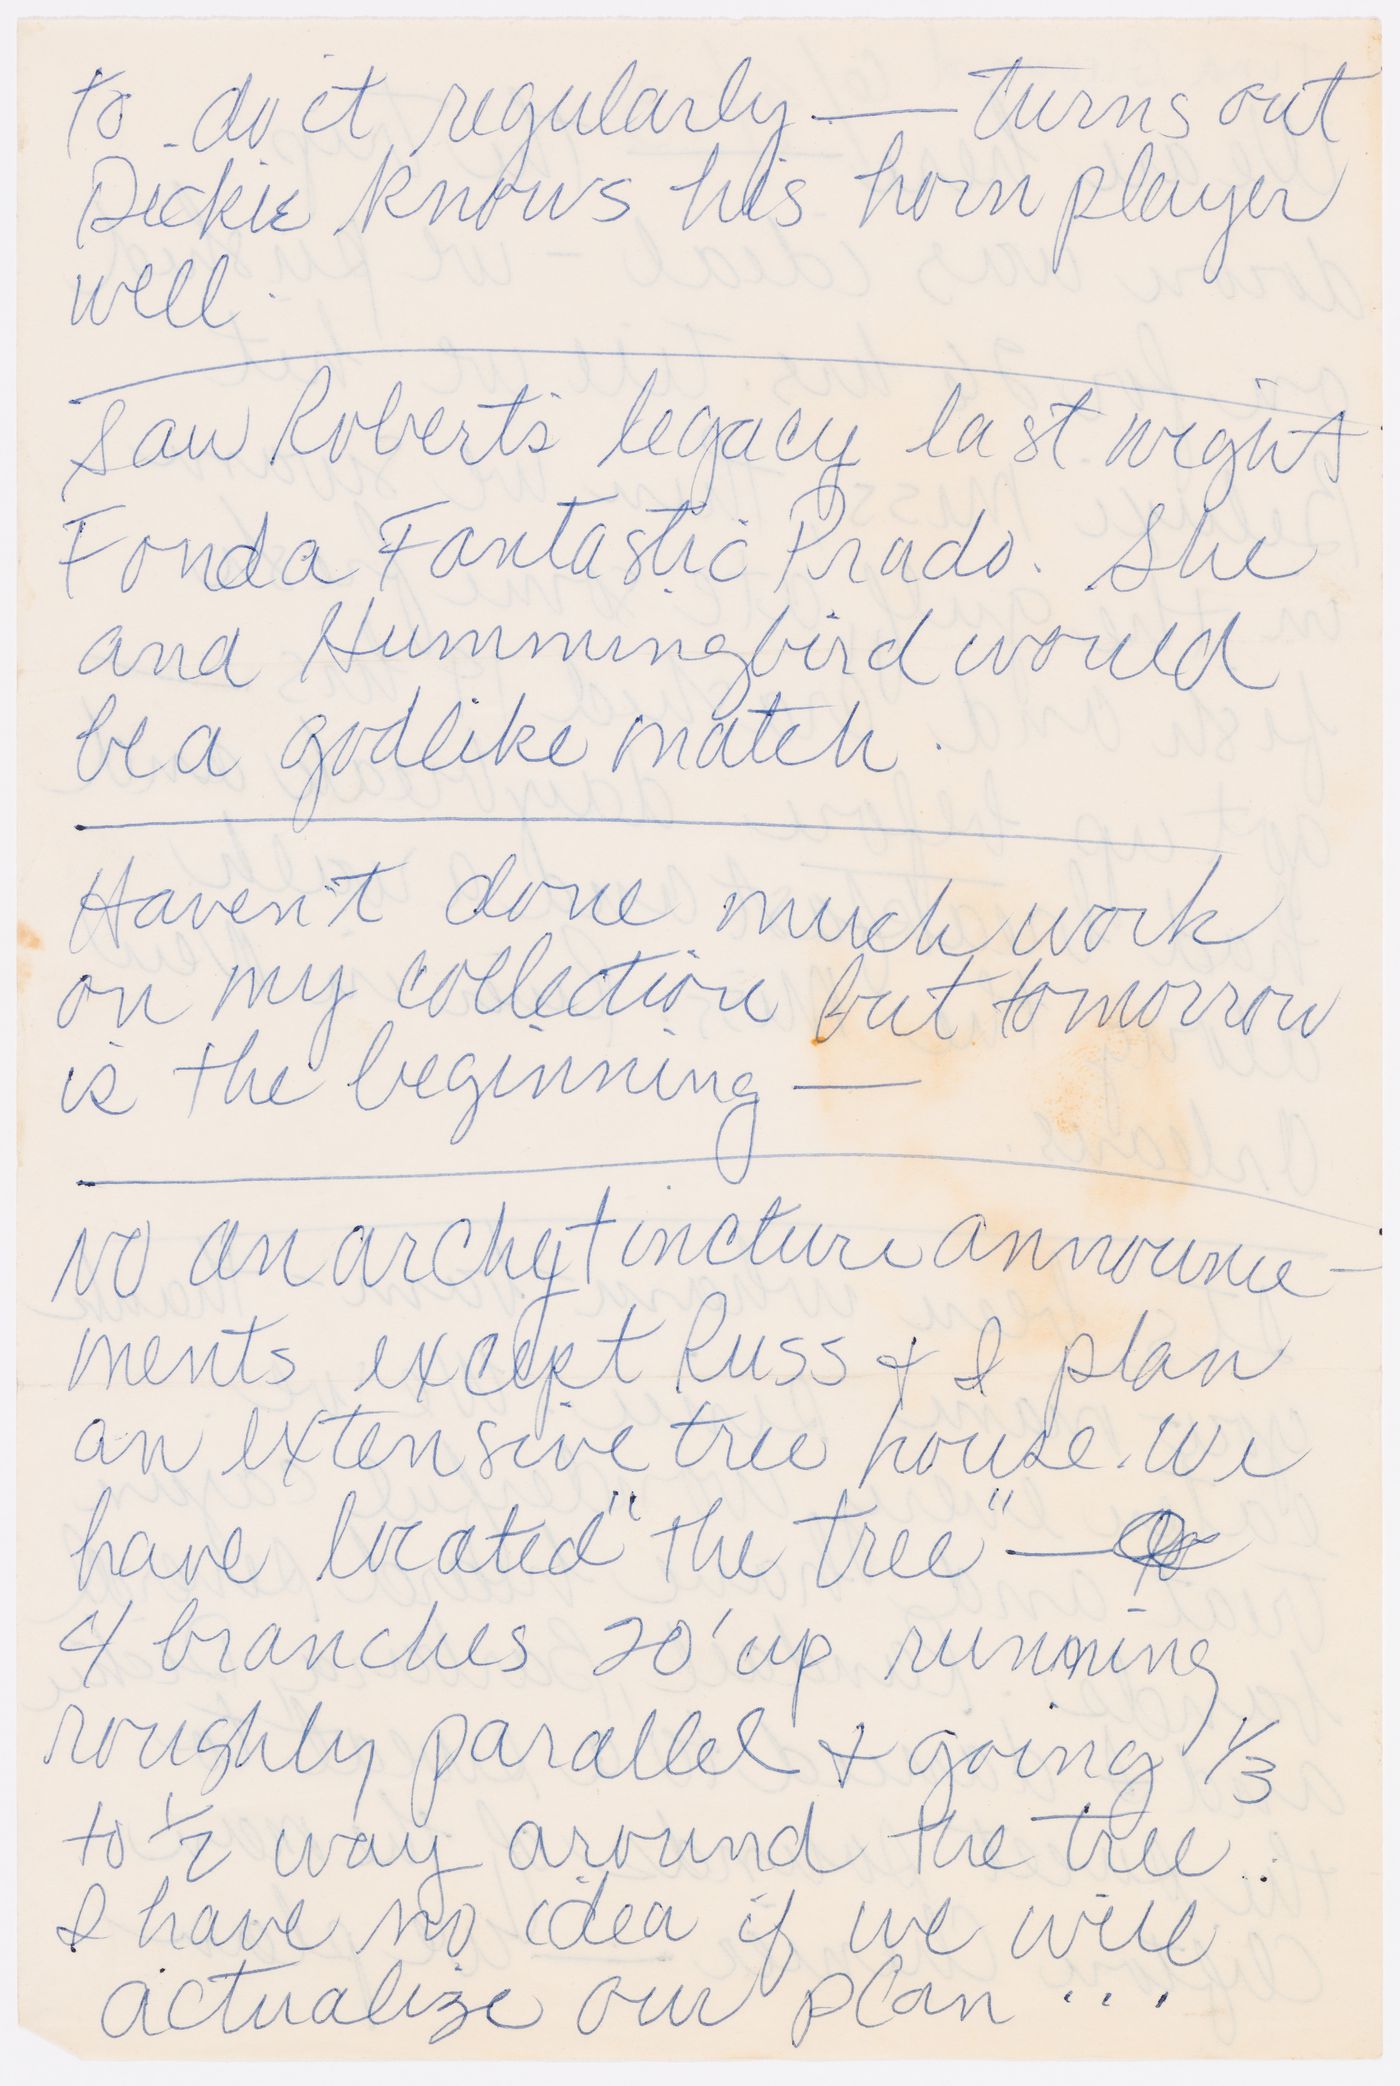 to do it regularly — turns out
Dickie knows his horn player
well.
Saw Robert's legacy last night
Fonda Fantastic Prado. She
and Hummingbird would
be a godlike match.
Haven't done much work
on my collection but tomorrow
is the beginning —
No anarchy tincture announce-
ments except Russ & I plan
an extensive tree house. We
have located "the tree" —
4 branches 20' up running
roughly parallel & going 1/3
to 1/2 way around the tree..
I have no idea if we will
actualize our plan ...